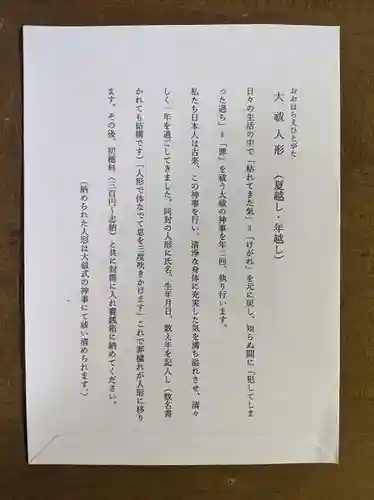 おおはらえひとがた
大祓人形　（夏越し・年越し）
日々の生活の中で「枯れてきた気」＝「けがれ」を元に戻し、知らぬ間に「犯してしま
った過ち」＝「罪」を祓う大祓の神事を年二回、執り行います。
私たち日本人は古来、この神事を行い、清浄な身体に充実した気を満ち溢れさせ、清々
しく一年を過ごしてきました。同封の人形に氏名、生年月日、数え年を記入し（数名書
かれても結構です）「人形で体なでて息を三度吹きかけます」これで罪穢れが人形に移り
ます。その後、初穂料（三百円〜志納）と共に封筒に入れ賽銭箱に納めてください。
（納められた人形は大祓式の神事にて祓い清められます。）